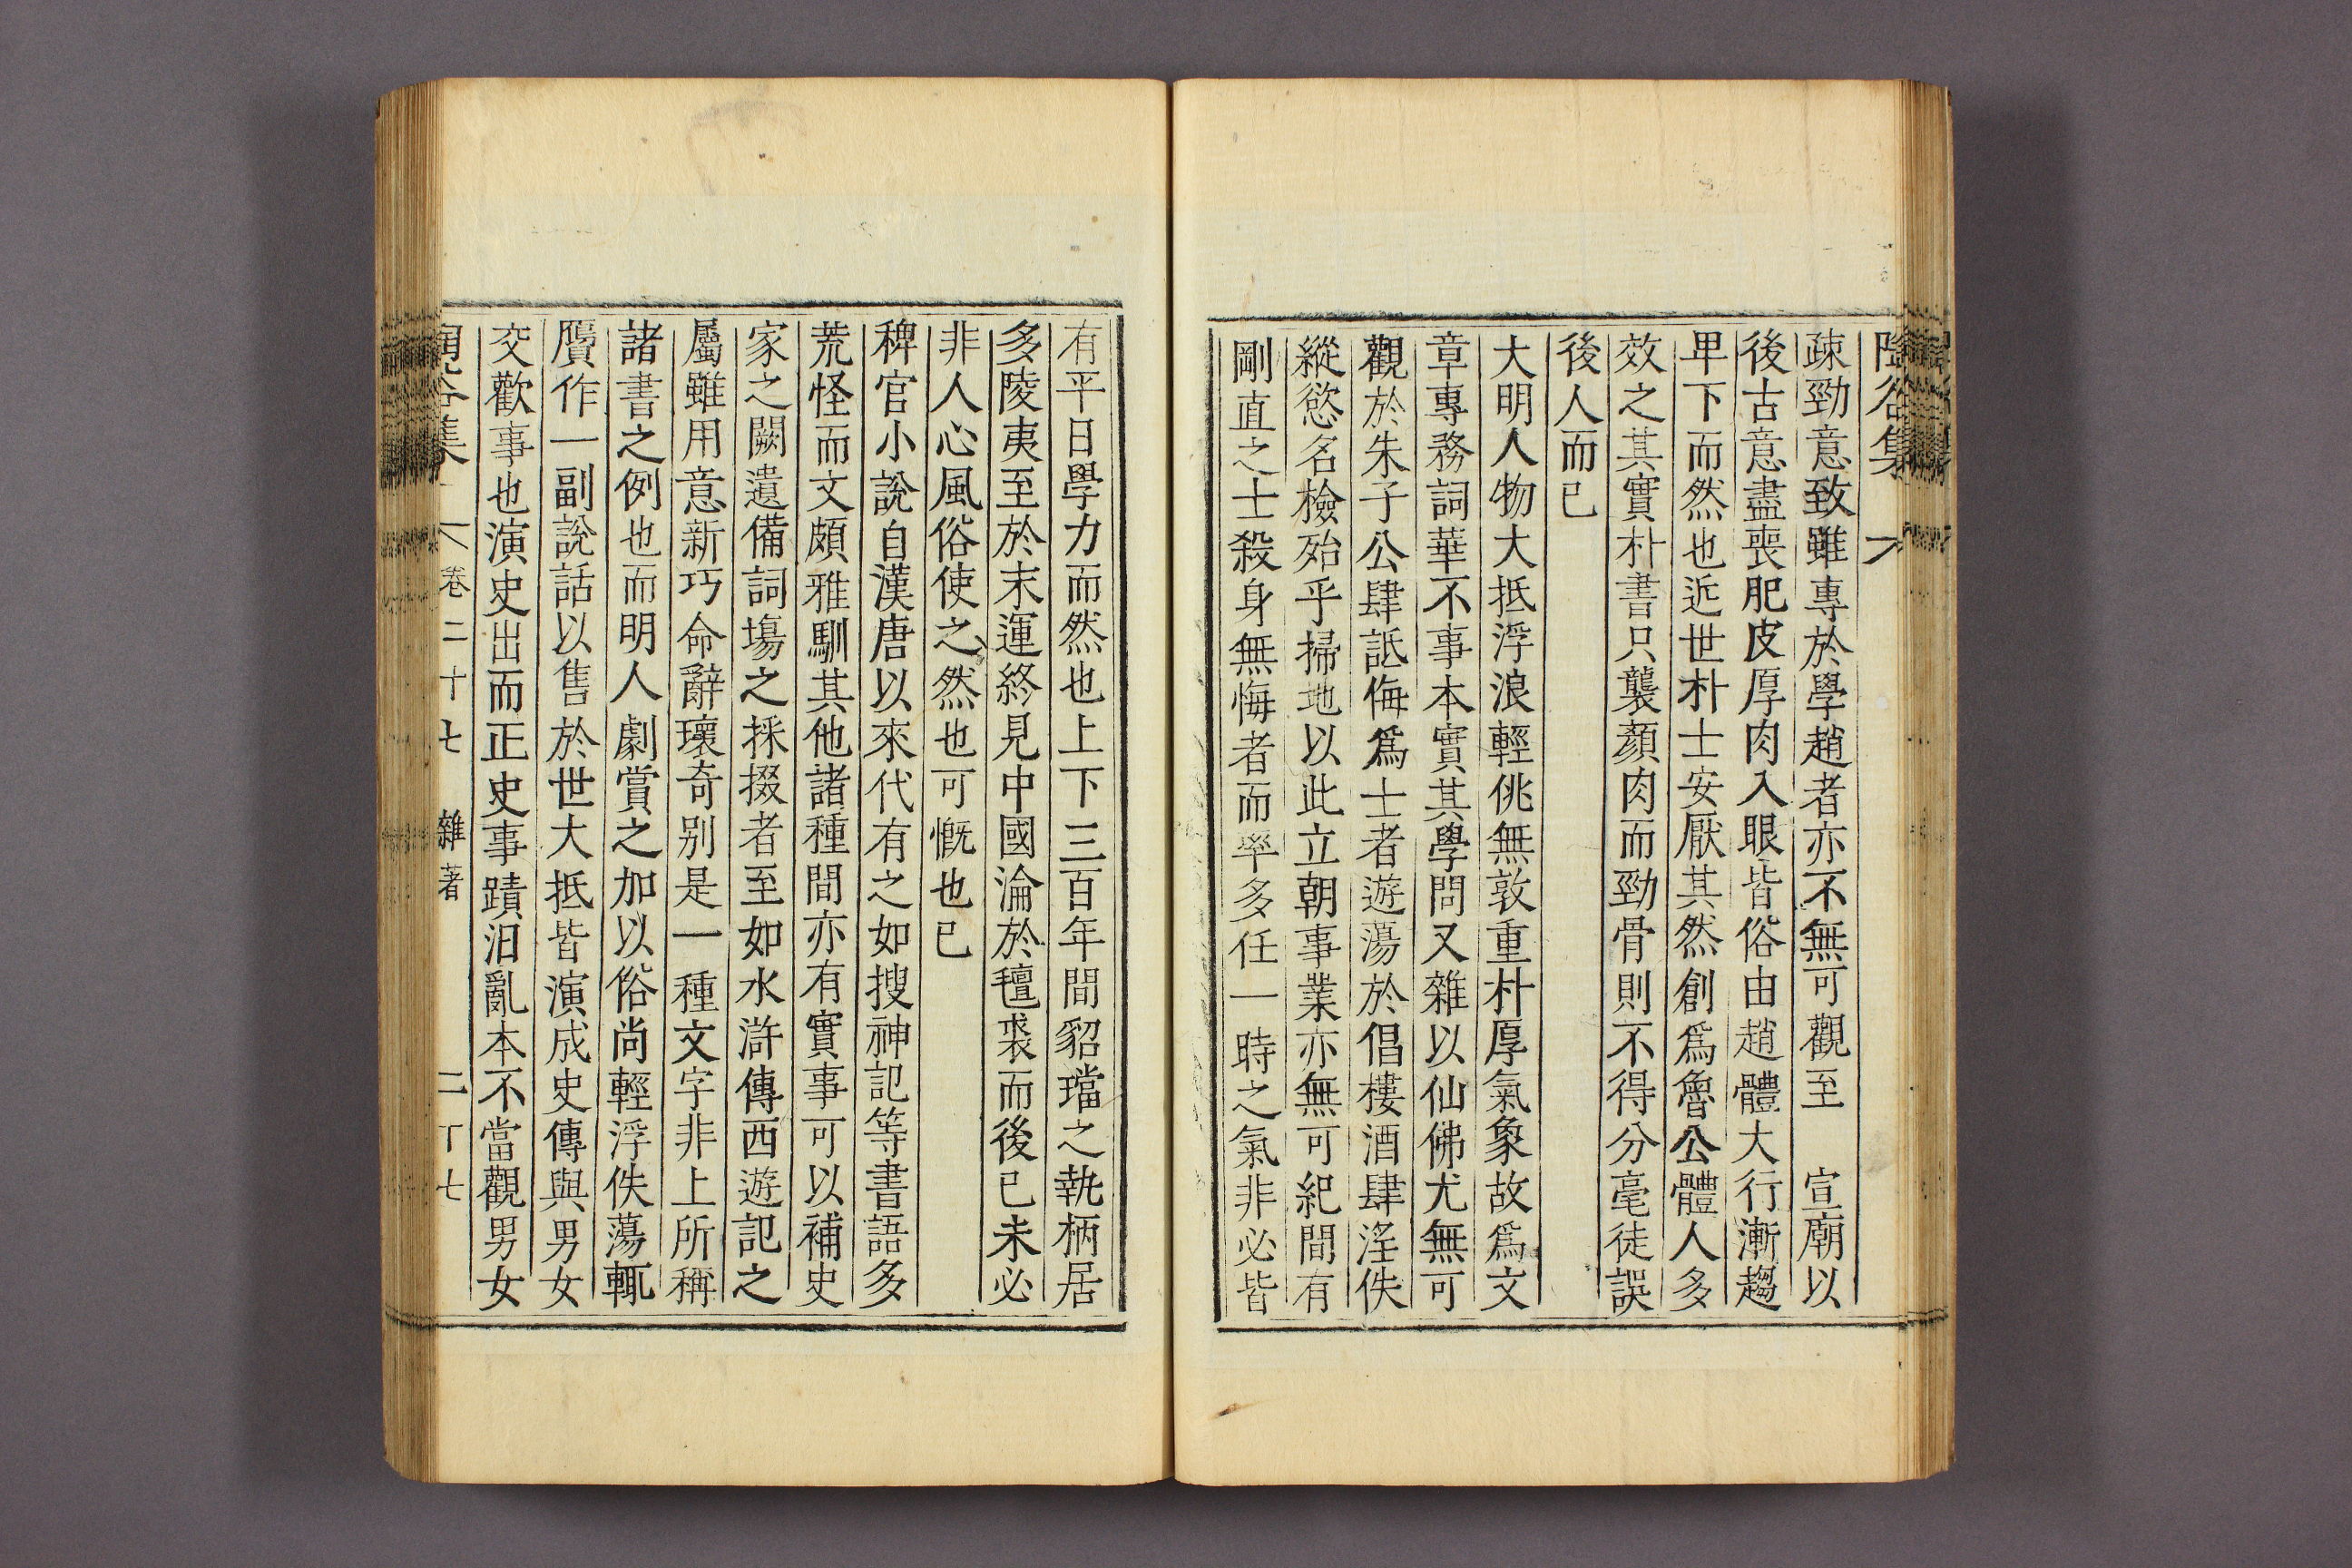 陶谷集
疎勁意致雖專於學趙者亦不無可觀至　宣廟以
後古意盡喪肥皮厚肉入眼皆俗由趙體大行漸趨
卑下而然也近世朴士安厭其然創爲魯公體人多
效之其實朴書只襲顏肉而勁骨則不得分毫徒誤
後人而已
大明人物大抵浮浪輕佻無敦重朴厚氣象故爲文
章專務詞華不事本實其學問又雜以仙佛尤無可
觀於朱子公肆詆侮爲士者遊蕩於倡樓酒肆淫佚
縱慾名檢殆乎掃地以此立朝事業亦無可紀間有
剛直之士殺身無悔者而率多任一時之氣非必皆
有平日學力而然也上下三百年間貂璫之執柄居
多陵夷至於末運終見中國淪於氊裘而後已未必
非人心風俗使之然也可慨也已
稗官小說自漢唐以來代有之如搜神記等書語多
荒怪而文頗雅馴其他諸種間亦有實事可以補史
家之闕遺備詞場之採掇者至如水滸傳西遊記之
屬雖用意新巧命辭瓌奇别是一種文字非上所稱
諸書之例也而明人劇賞之加以俗尚輕浮佚蕩輒
贋作一副說話以售於世大抵皆演成史傳與男女
交歡事也演史出而正史事蹟汨亂本不當觀男女
谷集 卷二十七 雜著 二十七